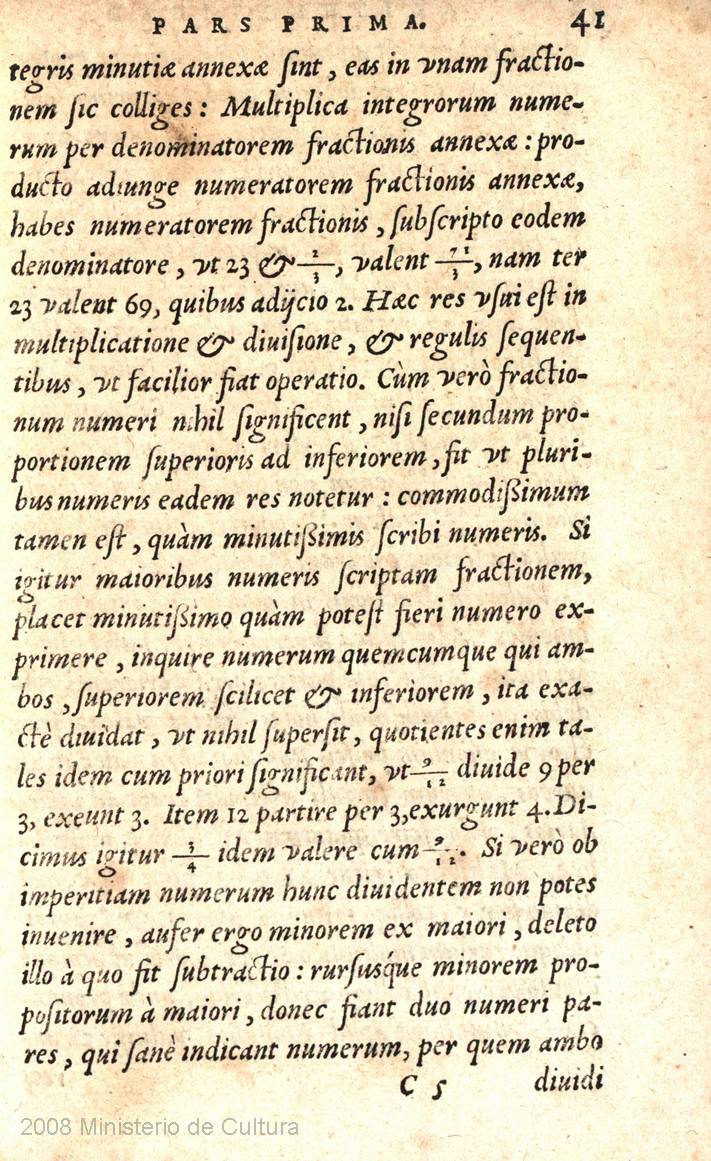 PARS PRIMA. 41
tegris minutiæ annexæ ſint, eas in vnam fractio-
nem ſic colliges: Multiplica integrorum nume-
rum per denominatorem fractionis annexæ: pro-
ducto adiunge numeratorem fractionis annexæ,
habes numeratorem fractionis, ſubſcripto eodem
denominatore, vt 23 & 2/3, valent 71/3, nam ter
23 valent 69, quibus adijcio 2. Hæc res vſui eſt in
multiplicatione & diuiſione, & regulis ſequen-
tibus, vt facilior fiat operatio. Cùm verò fractio-
num numeri nihil ſignificent, niſi ſecundum pro-
portionem ſuperioris ad inferiorem, fit vt pluri-
bus numeris eadem res notetur: commodißimum
tamen eſt, quàm minutißimis ſcribi numeris. Si
igitur maioribus numeris ſcriptam fractionem,
placet minutißimo quàm poteſt fieri numero ex-
primere, inquire numerum quemcumque qui am-
bos, ſuperiorem ſcilicet & inferiorem, ita exa-
ctè diuidat, vt nihil ſuperſit, quotientes enim ta-
les idem cum priori ſignificant, vt 9/12 diuide 9 per
3, exeunt 3. Item 12 partire per 3, exurgunt 4. Di-
cimus igitur 3/4 idem valere cum 9/12. Si verò ob
imperitiam numerum hunc diuidentem non potes
inuenire, aufer ergo minorem ex maiori, deleto
illo à quo fit ſubtractio: rurſusq́ue minorem pro-
poſitorum à maiori, donec fiant duo numeri pa-
res, qui ſanè indicant numerum, per quem ambo
C 5 diuidi
2008 Ministerio de Cultura